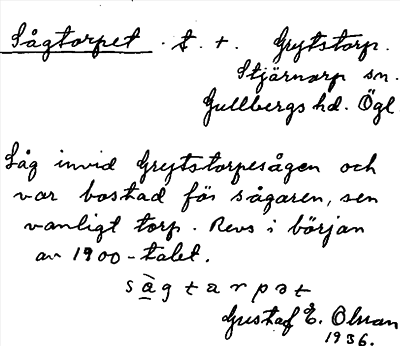 Sågtorpet. t. +. Grytstorp.
Stjärnorp sn.
Gullbergs hd. Ögl
Låg invid Grytstorpesågen och
var bostad för sågaren, sen
vanligt torp. Revs i början
av 1900-talet.
sàgtarpət
Gustaf E. Olsson
1936.